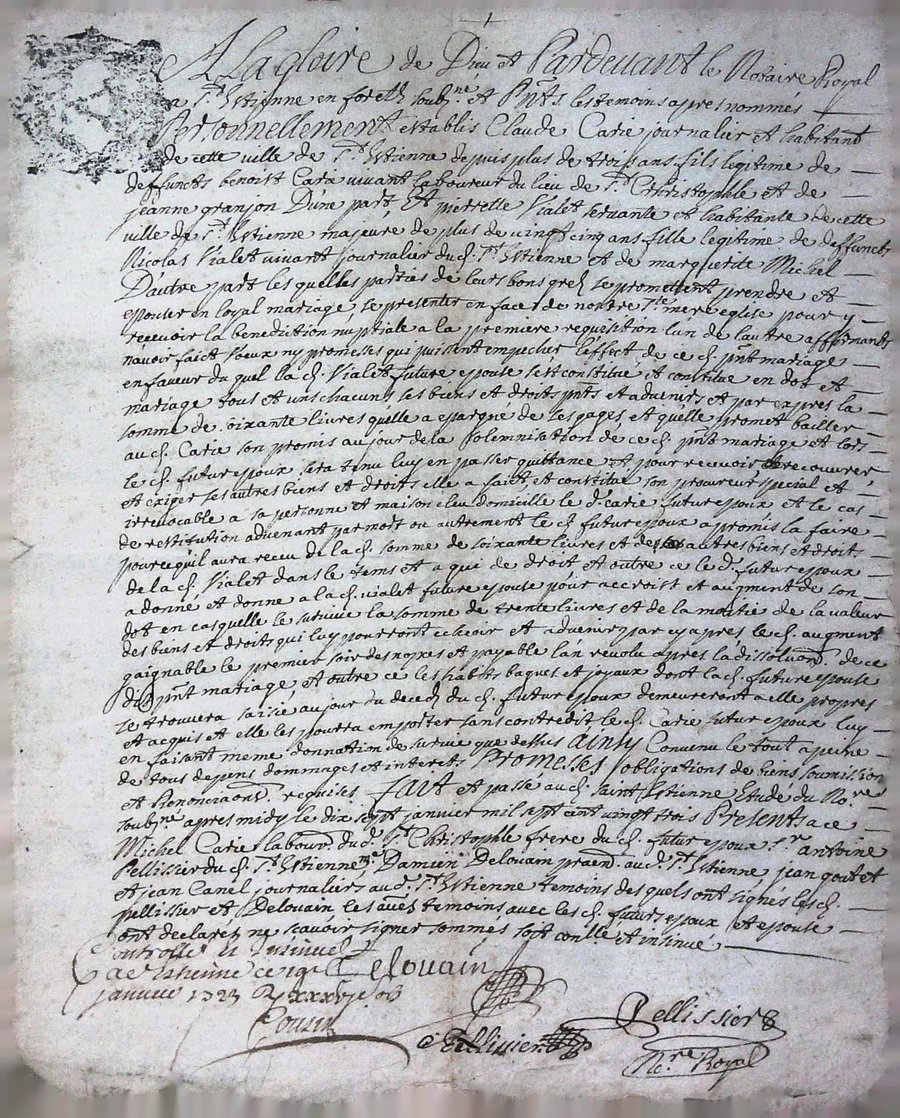 A La gloire de Dieu et Pardevant le Notaire Royal
a St Estienne en forestz soubne et Pnts les temoins apres nommés
Personnellement establis Claude Carie journalier et habitant
de cette ville de St Estienne depuis plus de trois ans fils legitime de
deffuncts benoist Cara vivant laboureur du lieu de St Christophle et de
jeanne granjon Dune part, Et pierrette Vialet servante et habitante de cette
ville de St Estienne majeure de plus de vingt cinq ans fille legitime de deffunct
Nicolas Vialet vivant journalier du d. St Estienne et de marguerite Michel
D'autre part les quelles parties de leurs bons grez se promettent prendre et
epouser en loyal mariage, se presenter en face de nostre ste mere eglise pour y
recevoir la benediction nuptiale a la premiere requisition lun de lautre affirmants
n'avoir faict voeux ny promesses qui puissent empecher l'effect de ce d. pnt mariage
en faveur du quel la d. Vialet future epouse sest constitue et constitue en dot et
mariage tous et uns chacuns ses biens et droits pnts et advenirs et par expres la
somme de soixante livres quelle a epargne de ses gages, et qu'elle promet bailler
au d. Carie son promis au jour de la solemnisation de ce d. pnt mariage et lors
le d. futur epoux sera tenu luy en passer quittance et pour recevoir recouvrer
et exiger ses autres biens et droits elle a faict et constitue son procureur special et
irrevocable a sa personne et maison elu domicille le d. carie futur epoux et le cas
de restitution advenant par mort ou autrement le d. futur epoux a promis la faire
pour ce qu'il aura receu de la d. somme de soixante livres et de ses autres biens et droits
de la d. Vialet dans le tems et a qui de droit et outre ce le d. futur epoux
a donne et donne a la d. vialet future epouse pour accroist et augment de son
dot en cas quelle le survive la somme de trente livres et de la moitie de la valeur
des biens et droits qui luy pourront echeoir et advenir par cy apres, le d. augment
gaignable le premier soir des nopces et payable lan revolu apres la dissoluon de ce
dit pnt mariage, et outre ce les habits bagues et joyaux dont la d. future epouse
se trouvera saisie au jour du decedz du d. futur epoux demeureront a elle propres
et acquis et elle les pourra emporter sans contredit le d. Carie futur epoux luy
en faisant meme donnation de survie que dessus ainsy Convenu le tout a peine
de tous depens dommages et interets Promesses obligations de biens soumission
et Renonciaons requises fait et passé au d. saint Estienne Etude du Nore
soubne apres midy le dix sept janvier mil sept cent vingt trois Presents a ce
Michel Carie labour. du d. St Christophle frere du d. futur epoux sr antoine
Pellissier du d. St Estienne Damien Delouain au d. St Estienne, jean goutet
et jean Canel journaliers au d. St Estienne temoins des quels ont signés les d.
pellissier et Delouain, les autres temoins avec les d. futurs epoux et epouse
ont declarez ne scavoir signer sommes
Controllé et Insinué
a st Etienne ce 19e Delouain
janvier 1723
Cousin
Pellissier
Pellissier
Nre Royal